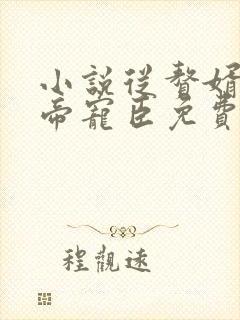 小說從贅婿
帝寵臣免費
程觀遠